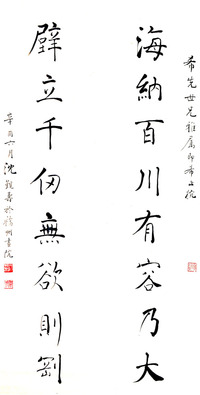 希先世兄雅屬即希正捥
海納百川有容乃大
壁立千仞無欲則剛
辛酉六月沈觀壽於福州書院